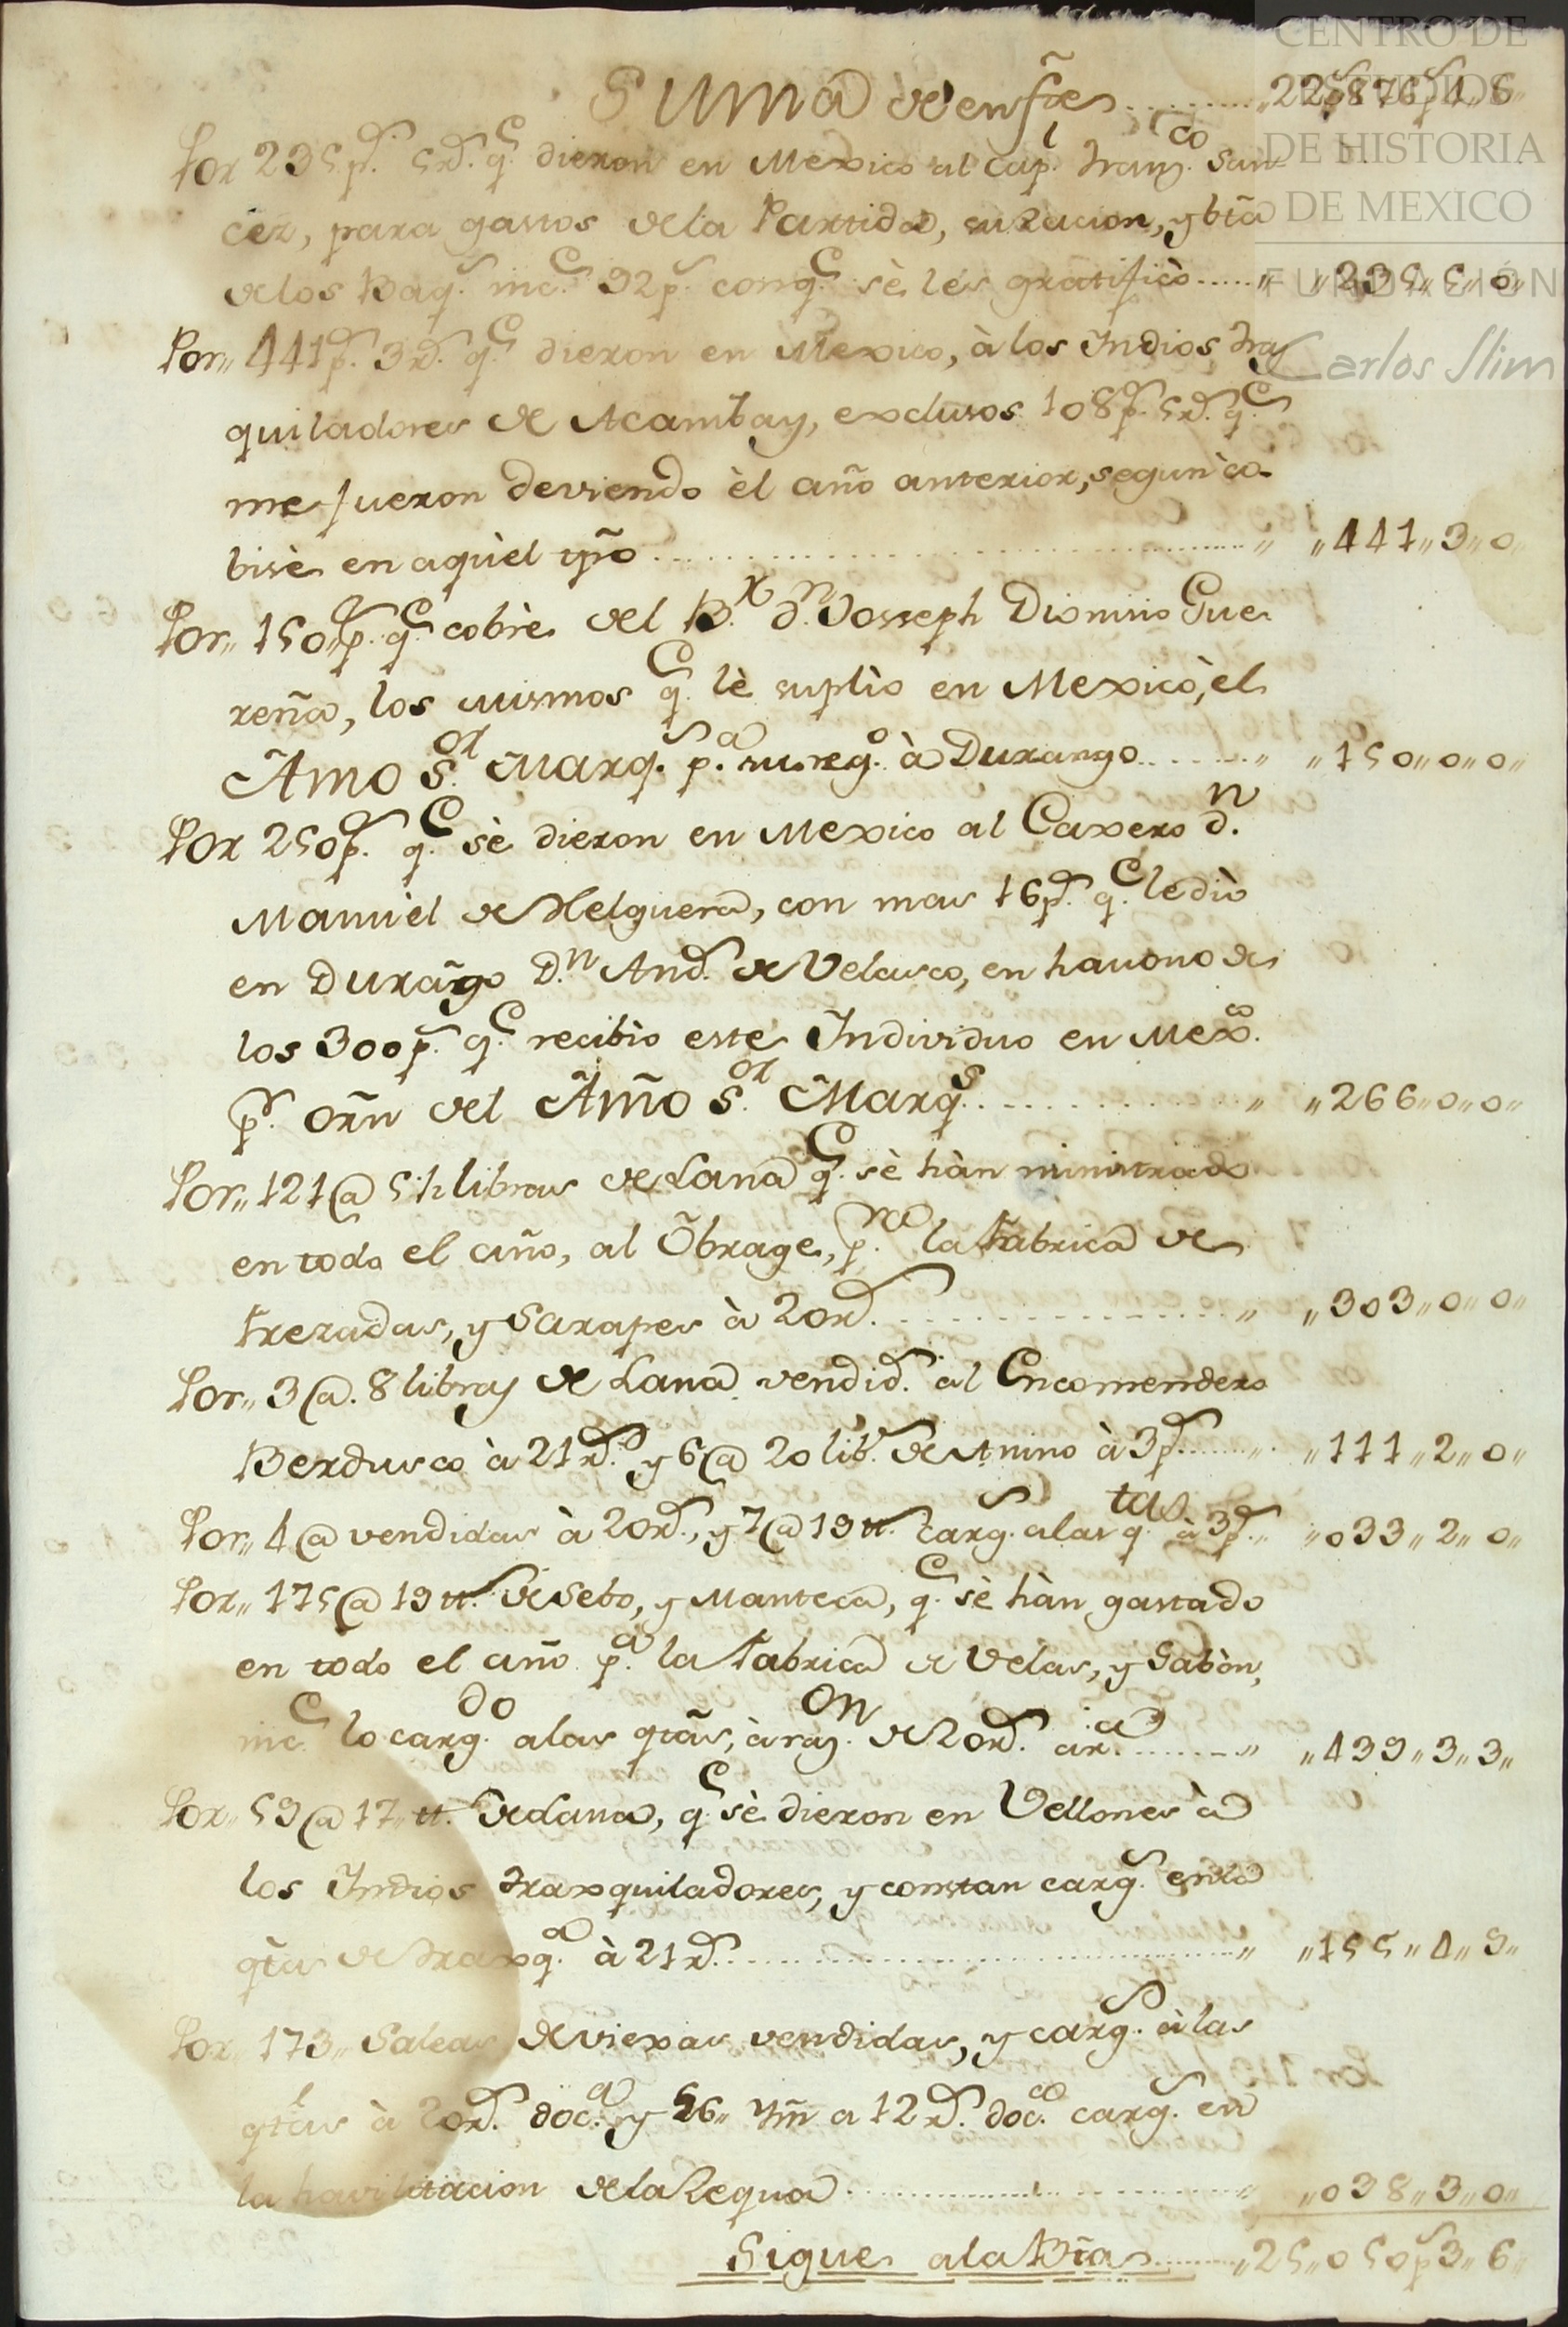 CENTRO DE
ESTUDIOS
DE HISTORIA
DE MEXICO
FUNDACIÓN
Carlos Slim
Suma de enfte.......... „22„876p.s 4„ 6„
Por 235p.s 5r.s q.e dieron en Mexico al Cap.n Fran.co San-
cèz, para gastos de la Partida, su racion, y bta
de los Baq.s inc.e 92p.s conq.e sè les gratificò......„ „235„ 5„ 0„
Por„ 441p.s 3r.s q.e dieron en Mexico, à los Indios tras
quiladores de Acambay, exclusos 108p.s 5r.s q.e
me fueron deviendo èl año anterior, segun co-
bisè en aquèl ỹño.......................„ „441„ 3„ 0„
Por„ 150„p.s q.e cobrè del B.r d.n Josseph Dionisio Gue-
reña, los mismos q.e lè suplìo en Mexico, èl
Amo S.or Marq.s p.a su reg.o à Durango.......„ „150„ 0„ 0„
Por 250p.s q.e sè dieron en Mexico al Caxero d.n
Manuèl de Helguera, con mas 16p.s q.e le diò
en Durango D.n And.s de Velasco, en havono de
los 300p.s q.e recibìo este Individuo en Mex.co
p.r orñ del Amo S.or Marq.s............„ „266„ 0„ 0„
Por„ 121@ 5½ libras de Lana q.e sè hàn ministrado
en todo el año, al Obrage, p.ra la Fabrica de
Frezadas, y Sarapes à 20r.s...............„ „303„ 0„ 0„
Por„ 3@. 8 libras de Lana vendid.s al Encomendero
Berdusco à 21r.s y 6@ 20 lib.s de Añino à 3p.s......„ „111„ 2„ 0„
Por„ 4@ vendidas à 20r.s, y 7@ 19tt. carg.s alas q.tas à 3p.s.. „033„ 2„ 0„
Por„ 175@ 19tt. de Sebo, y Manteca, q.e sè hàn gastado
en todo el año p.a la Fabrica de Velas, y Jabòn,
inc.e lo carg.do alas qtas, à raz.on de 20r.s ar.a.......„ „439„ 3„ 3„
Por„ 59@ 17„ tt. de Lana, q.e sè dieron en Vellones à
los Indios Traxquiladores, y constan carg.s en la
qta de traxq.a à 21r.s......................„ „155„ 4„ 9„
Por„ 173„ Saleas de viexas vendidas, y carg.s à las
qtas à 20r.s doc.a y 26„ Ym a 12r.s doc.a carg.s en
la havilitacion de la Requa..............„ „038„ 3„ 0„
Sigue ala Bta.......„25„050p.s 3„ 6„